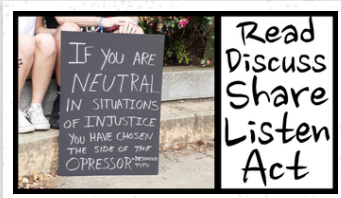 IF YOU ARE
NEUTRAL
IN SITUATIONS
OF INJUSTICE
YOU HAVE CHOSEN
THE SIDE OF THE
OPRESSOR-DESMOND
TUTU
Read
Discuss
Share
Listen
Act